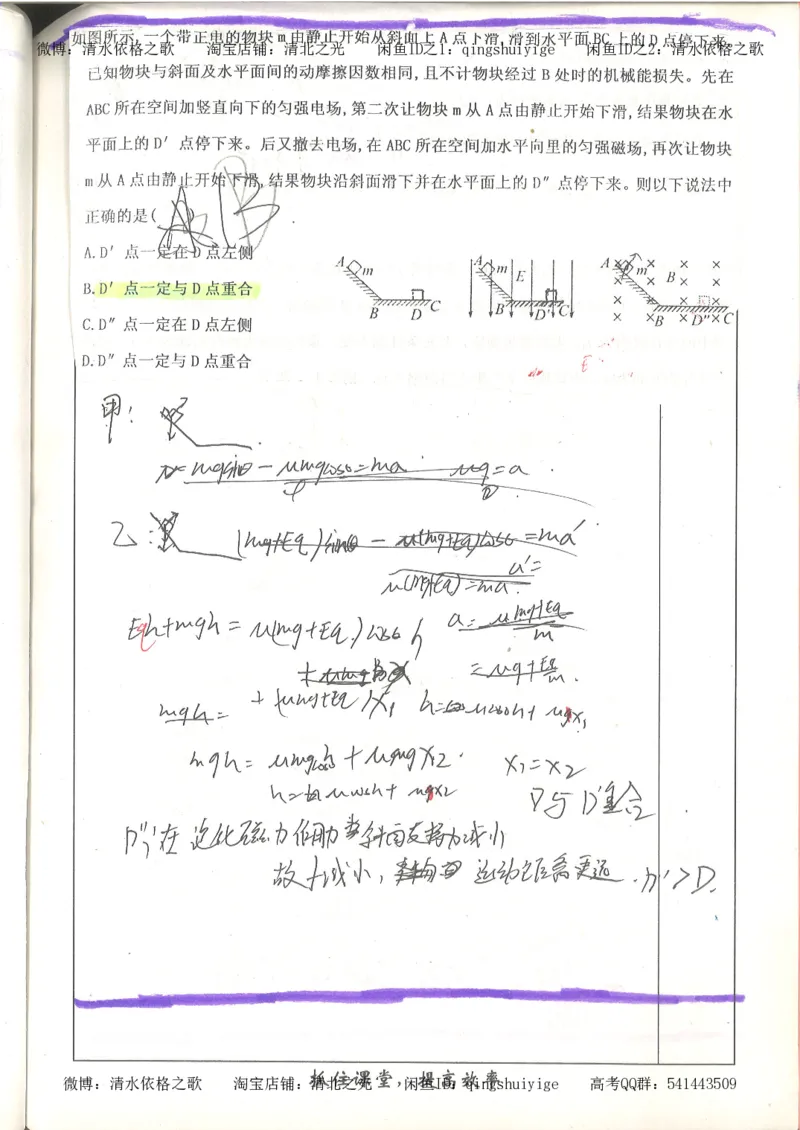 如图所示,一个带正电的物块m由静止开始从斜面上A点下滑,滑到水平面BC上的D点停下来。
微博：清水依格之歌 淘宝店铺：清北之光 闲鱼ID之1：qingshuiyige 闲鱼ID之2：清水依格之歌
已知物块与斜面及水平面间的动摩擦因数相同,且不计物块经过B处时的机械能损失。先在
ABC所在空间加竖直向下的匀强电场,第二次让物块m从A点由静止开始下滑,结果物块在水
平面上的D′点停下来。后又撤去电场,在ABC所在空间加水平向里的匀强磁场,再次让物块
m从A点由静止开始下滑,结果物块沿斜面滑下并在水平面上的D″点停下来。则以下说法中
正确的是( )
A B
A.D′点一定在D点左侧
B.D′点一定与D点重合
C.D″点一定在D点左侧
D.D″点一定与D点重合
A m B D C
A m E B D′ C
A m B B D″ C
E
甲:
mgsinθ − μmgcosθ = ma μg = a
乙:
(mg+Eq)sinθ − μ(mg+Eq)cosθ = ma′
μ(mg+Eq) = ma
Eqh+mgh = μ(mg+Eq)cosθ h
a = μ(mg+Eq) / m
+ (μmg+Eq)x₁
mgh =
mgh = μmgcosh + μmgx₂
x₁=x₂
D与D′重合
故f减小, 运动距离更远. D″>D.
抓住课堂，提高效率
微博：清水依格之歌 淘宝店铺：清北之光 闲鱼ID：qingshuiyige 高考QQ群：541443509